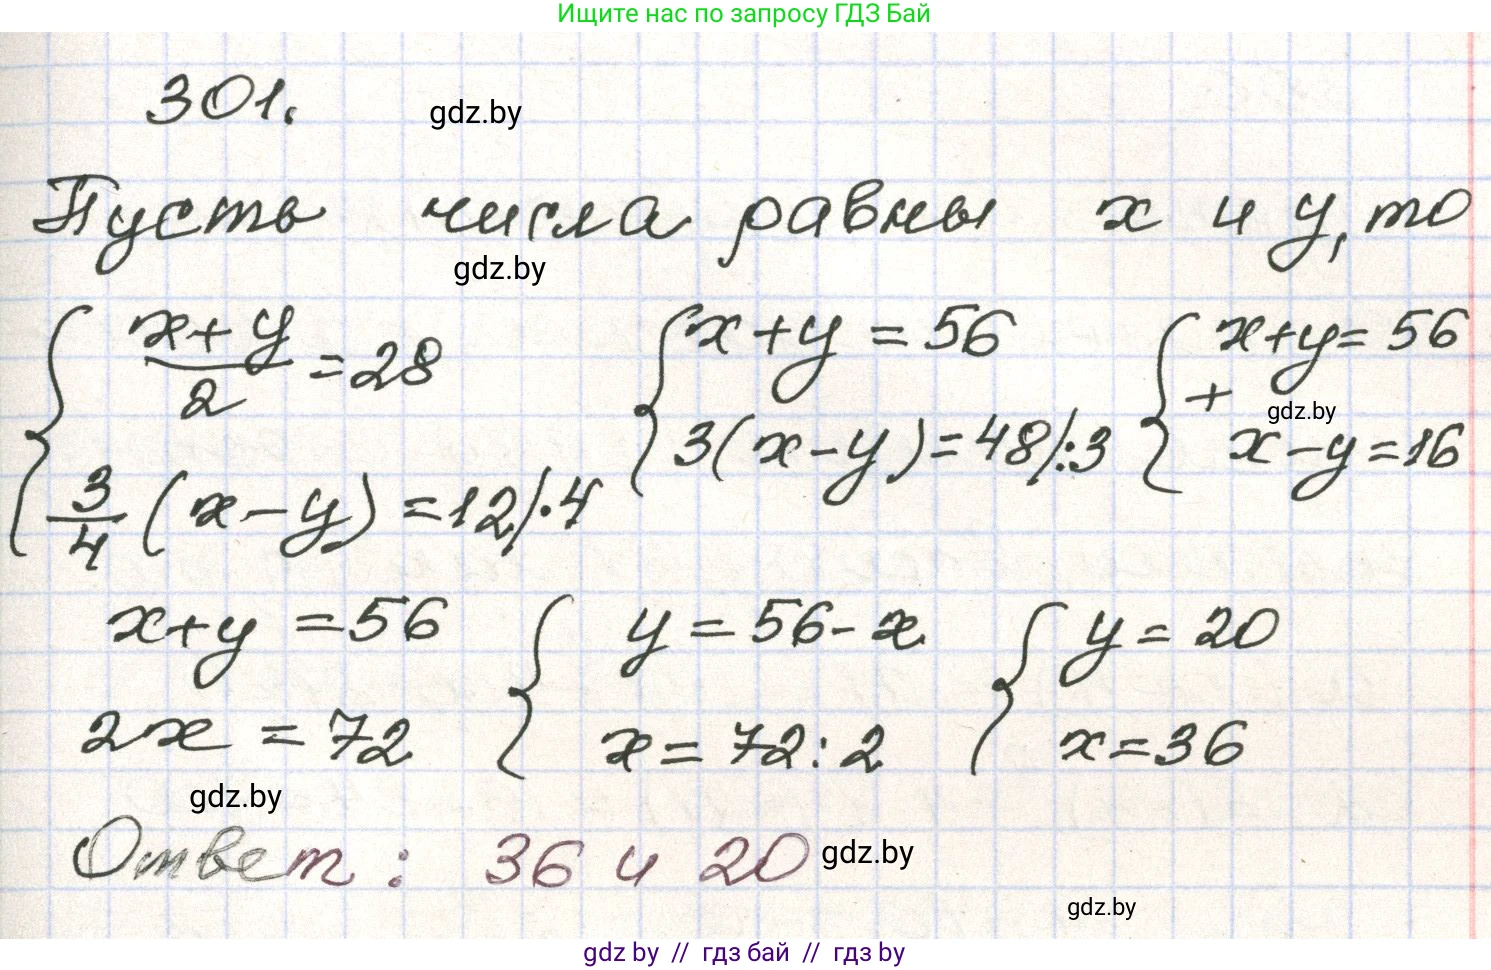 Ищите нас по запросу ГДЗ Бай
301.
gdz.by
Пусть числа равны x и y, то
gdz.by
{ (x+y)/2 = 28
{ 3/4 (x-y) = 12 /·4
{ x+y = 56
{ 3(x-y) = 48 /:3
{ x+y = 56
+
gdz.by
x-y = 16
x+y = 56
2x = 72
{ y = 56-x
{ x = 72:2
{ y = 20
{ x = 36
gdz.by
Ответ: 36 и 20
gdz.by
gdz.by
gdz by // гдз бай // гдз by